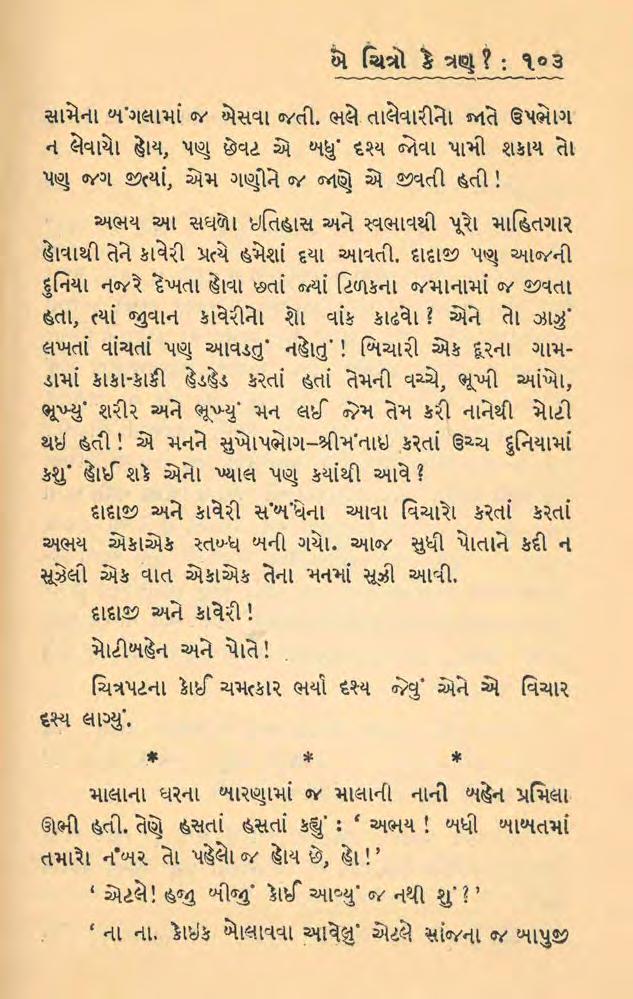 બે ચિત્રો કે ત્રણ? : ૧૦૩
સામેના બંગલામાં જ બેસવા જતી. ભલે તાલેવારીનો જાતે ઉપભોગ
ન લેવાયો હોય, પણ છેવટ એ બધું દૃશ્ય જોવા પામી શકાય તો
પણ જગ જીત્યાં, એમ ગણીને જ જાણે એ જીવતી હતી!
અભય આ સઘળો ઇતિહાસ અને સ્વભાવથી પૂરો માહિતગાર
હોવાથી તેને કાવેરી પ્રત્યે હમેશાં દયા આવતી. દાદાજી પણ આજની
દુનિયા નજરે દેખતા હોવા છતાં જ્યાં ટિળકના જમાનામાં જ જીવતા
હતા, ત્યાં જુવાન કાવેરીનો શો વાંક કાઢવો? એને તો ઝાઝું
લખતાં વાંચતાં પણ આવડતું નહોતું! બિચારી એક દૂરના ગામ-
ડામાં કાકા-કાકી હેડહેડ કરતાં હતાં તેમની વચ્ચે, ભૂખી આંખો,
ભૂખ્યું શરીર અને ભૂખ્યું મન લઈ જેમ તેમ કરી નાનેથી મોટી
થઇ હતી! એ મનને સુખોપભોગ–શ્રીમંતાઇ કરતાં ઉચ્ચ દુનિયામાં
કશું હોઈ શકે એનો ખ્યાલ પણ કયાંથી આવે?
દાદાજી અને કાવેરી સંબંધેના આવા વિચારો કરતાં કરતાં
અભય એકાએક સ્તબ્ધ બની ગયો. આજ સુધી પોતાને કદી ન
સૂઝેલી એક વાત એકાએક તેના મનમાં સૂઝી આવી.
દાદાજી અને કાવેરી!
મોટીબહેન અને પોતે!
ચિત્રપટના કોઈ ચમત્કાર ભર્યા દૃશ્ય જેવું એને એ વિચાર
દૃશ્ય લાગ્યું.
* * *
માલાના ઘરના બારણામાં જ માલાની નાની બહેન પ્રમિલા
ઊભી હતી. તેણે હસતાં હસતાં કહ્યું : ‘ અભય! બધી બાબતમાં
તમારો નંબર તો પહેલો જ હોય છે, હો!’
‘ એટલે! હજુ બીજું કોઈ આવ્યું જ નથી શું?’
‘ ના ના. કોઇક બોલાવવા આવેલું એટલે સાંજના જ બાપુજી